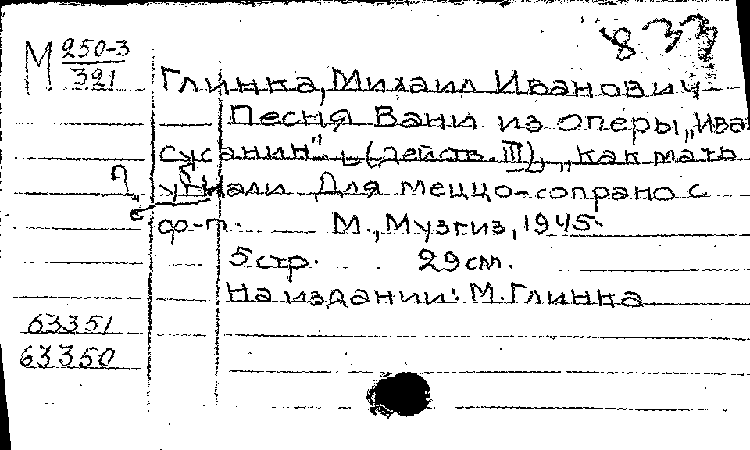 833
М 250-3
321
Глинка, Михаил Иванович
Песня Вани из оперы „Ива
сусанин" (действ. III), „как мать
убили Для меццо-сопрано с
ф-п. М., Музгиз, 1945.
5 стр. 29 см.
На издании: М. Глинка
63351
63350